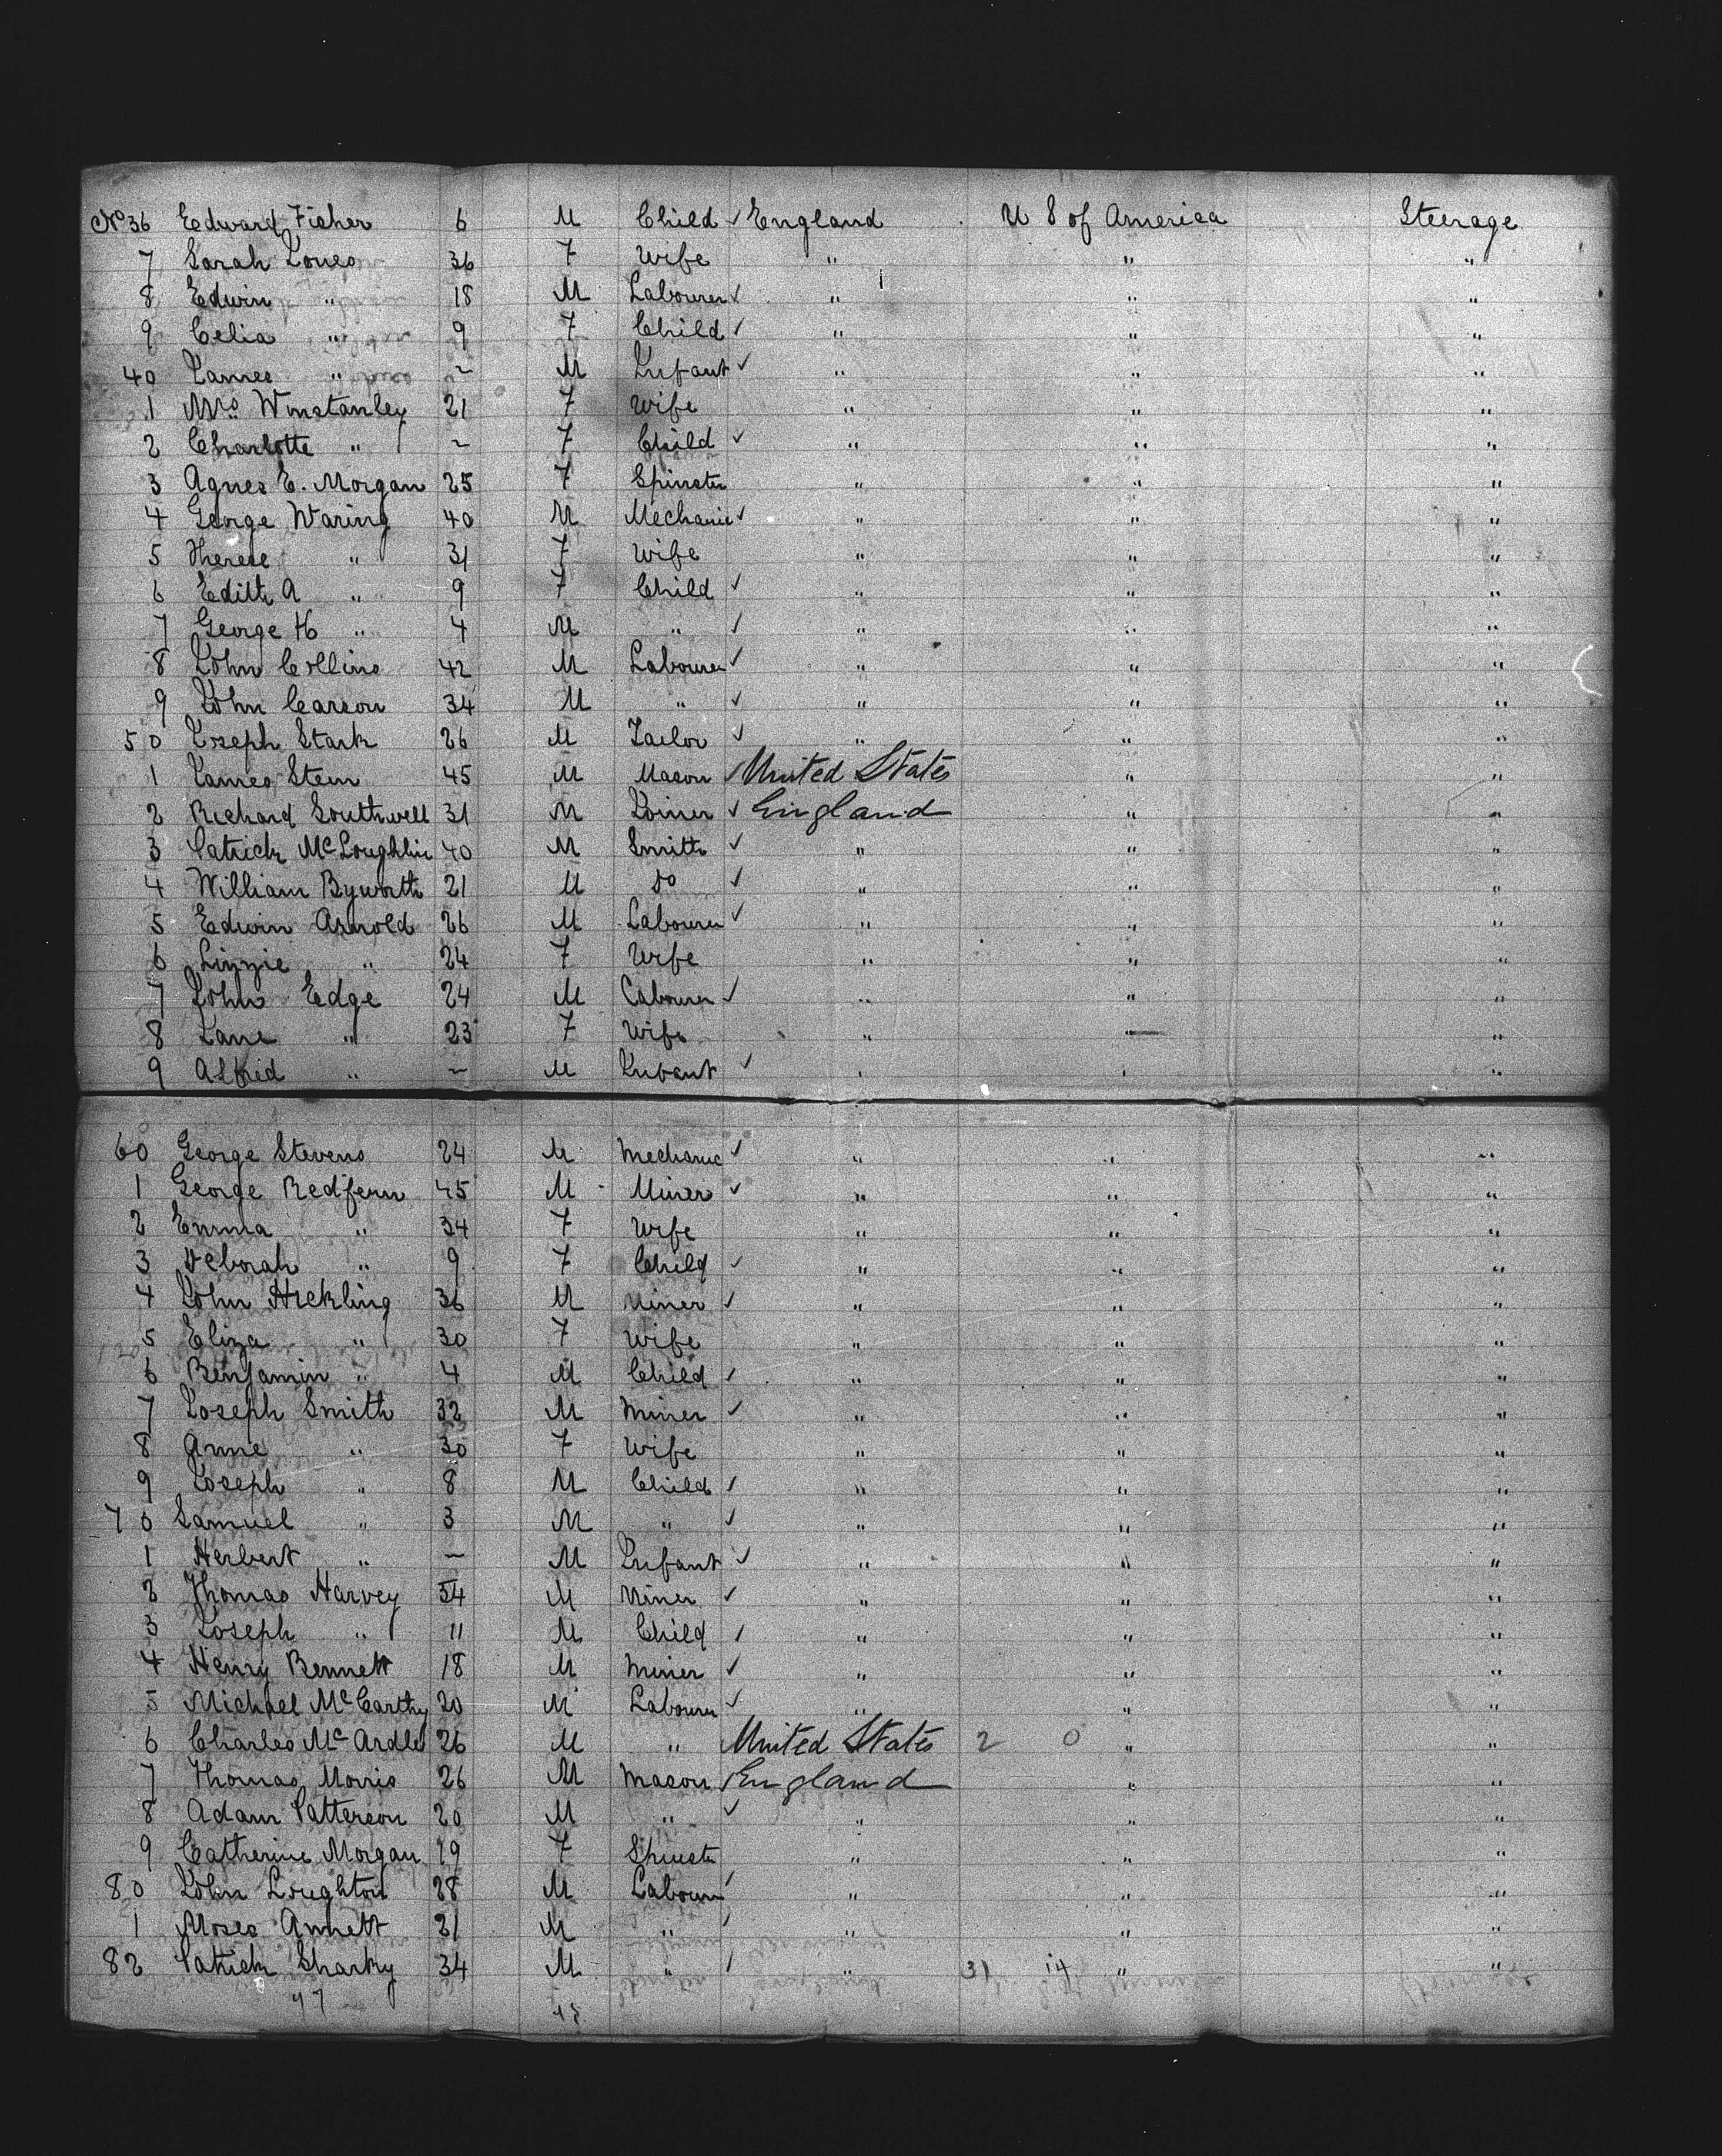 No 36 Edward Fisher 6 M Child ✓ England U S of America Steerage
7 Sarah Jones 36 F Wife " " "
8 Edwin " 18 M Labourer ✓ " " "
9 Celia " 9 F Child ✓ " " "
40 James " ~ M Infant ✓ " " "
1 Mrs Winstanley 21 F Wife " " "
2 Charlotte " ~ F Child ✓ " " "
3 Agnes E. Morgan 25 F Spinster " " "
4 George Waring 40 M Mechanic ✓ " " "
5 Therese " 31 F Wife " " "
6 Edith A " 9 F Child ✓ " " "
7 George H " 4 M " ✓ " " "
8 John Collins 42 M Labourer ✓ " " "
9 John Carson 34 M " ✓ " " "
50 Joseph Stark 26 M Tailor ✓ " " "
1 James Steen 45 M Mason ✓ United States " "
2 Richard Southwell 31 M Joiner ✓ England " "
3 Patrick McLoughlin 40 M Smith ✓ " " "
4 William Byworth 21 M Do ✓ " " "
5 Edwin Arnold 26 M Labourer ✓ " " "
6 Lizzie " 24 F Wife " " "
7 John Edge 24 M Labourer ✓ " " "
8 Jane " 23 F Wife " " "
9 Alfred " ~ M Infant ✓ " " "
60 George Stevens 24 M Mechanic ✓ " " "
1 George Redfern 45 M Miner ✓ " " "
2 Emma " 34 F Wife " " "
3 Deborah " 9 F Child ✓ " " "
4 John Hickling 36 M Miner ✓ " " "
5 Eliza " 30 F Wife " " "
6 Benjamin " 4 M Child ✓ " " "
7 Joseph Smith 32 M Miner ✓ " " "
8 Anne " 30 F Wife " " "
9 Joseph " 8 M Child ✓ " " "
70 Samuel " 3 M " ✓ " " "
1 Herbert " ~ M Infant ✓ " " "
2 Thomas Harvey 34 M Miner ✓ " " "
3 Joseph " 11 M Child ✓ " " "
4 Henry Bennett 18 M Miner ✓ " " "
5 Michael McCarthy 20 M Labourer ✓ " " "
6 Charles McArdle 26 M " United States 2 0 " "
7 Thomas Morris 26 M Mason ✓ England " "
8 Adam Patterson 20 M " ✓ " " "
9 Catherine Morgan 19 F Spinster " " "
80 John Loughton 28 M Labourer ✓ " " "
1 Moses Annett 21 M " ✓ " " "
82 Patrick Sharky 34 M " ✓ " 31 14 " "
47